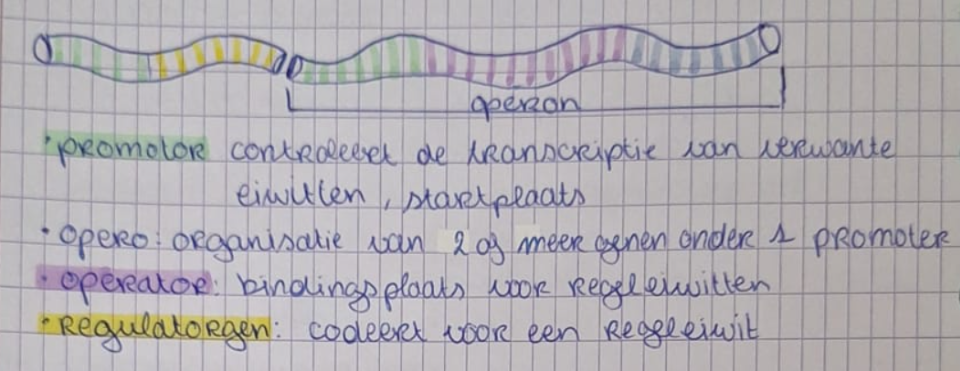 operon
• promotor controleert de transcriptie van verwante
eiwitten, startplaats
• opero: organisatie van 2 of meer genen onder 1 promoter
• operator: bindingsplaats voor regeleiwitten
• Regulatorgen: codeert voor een Regeleiwit